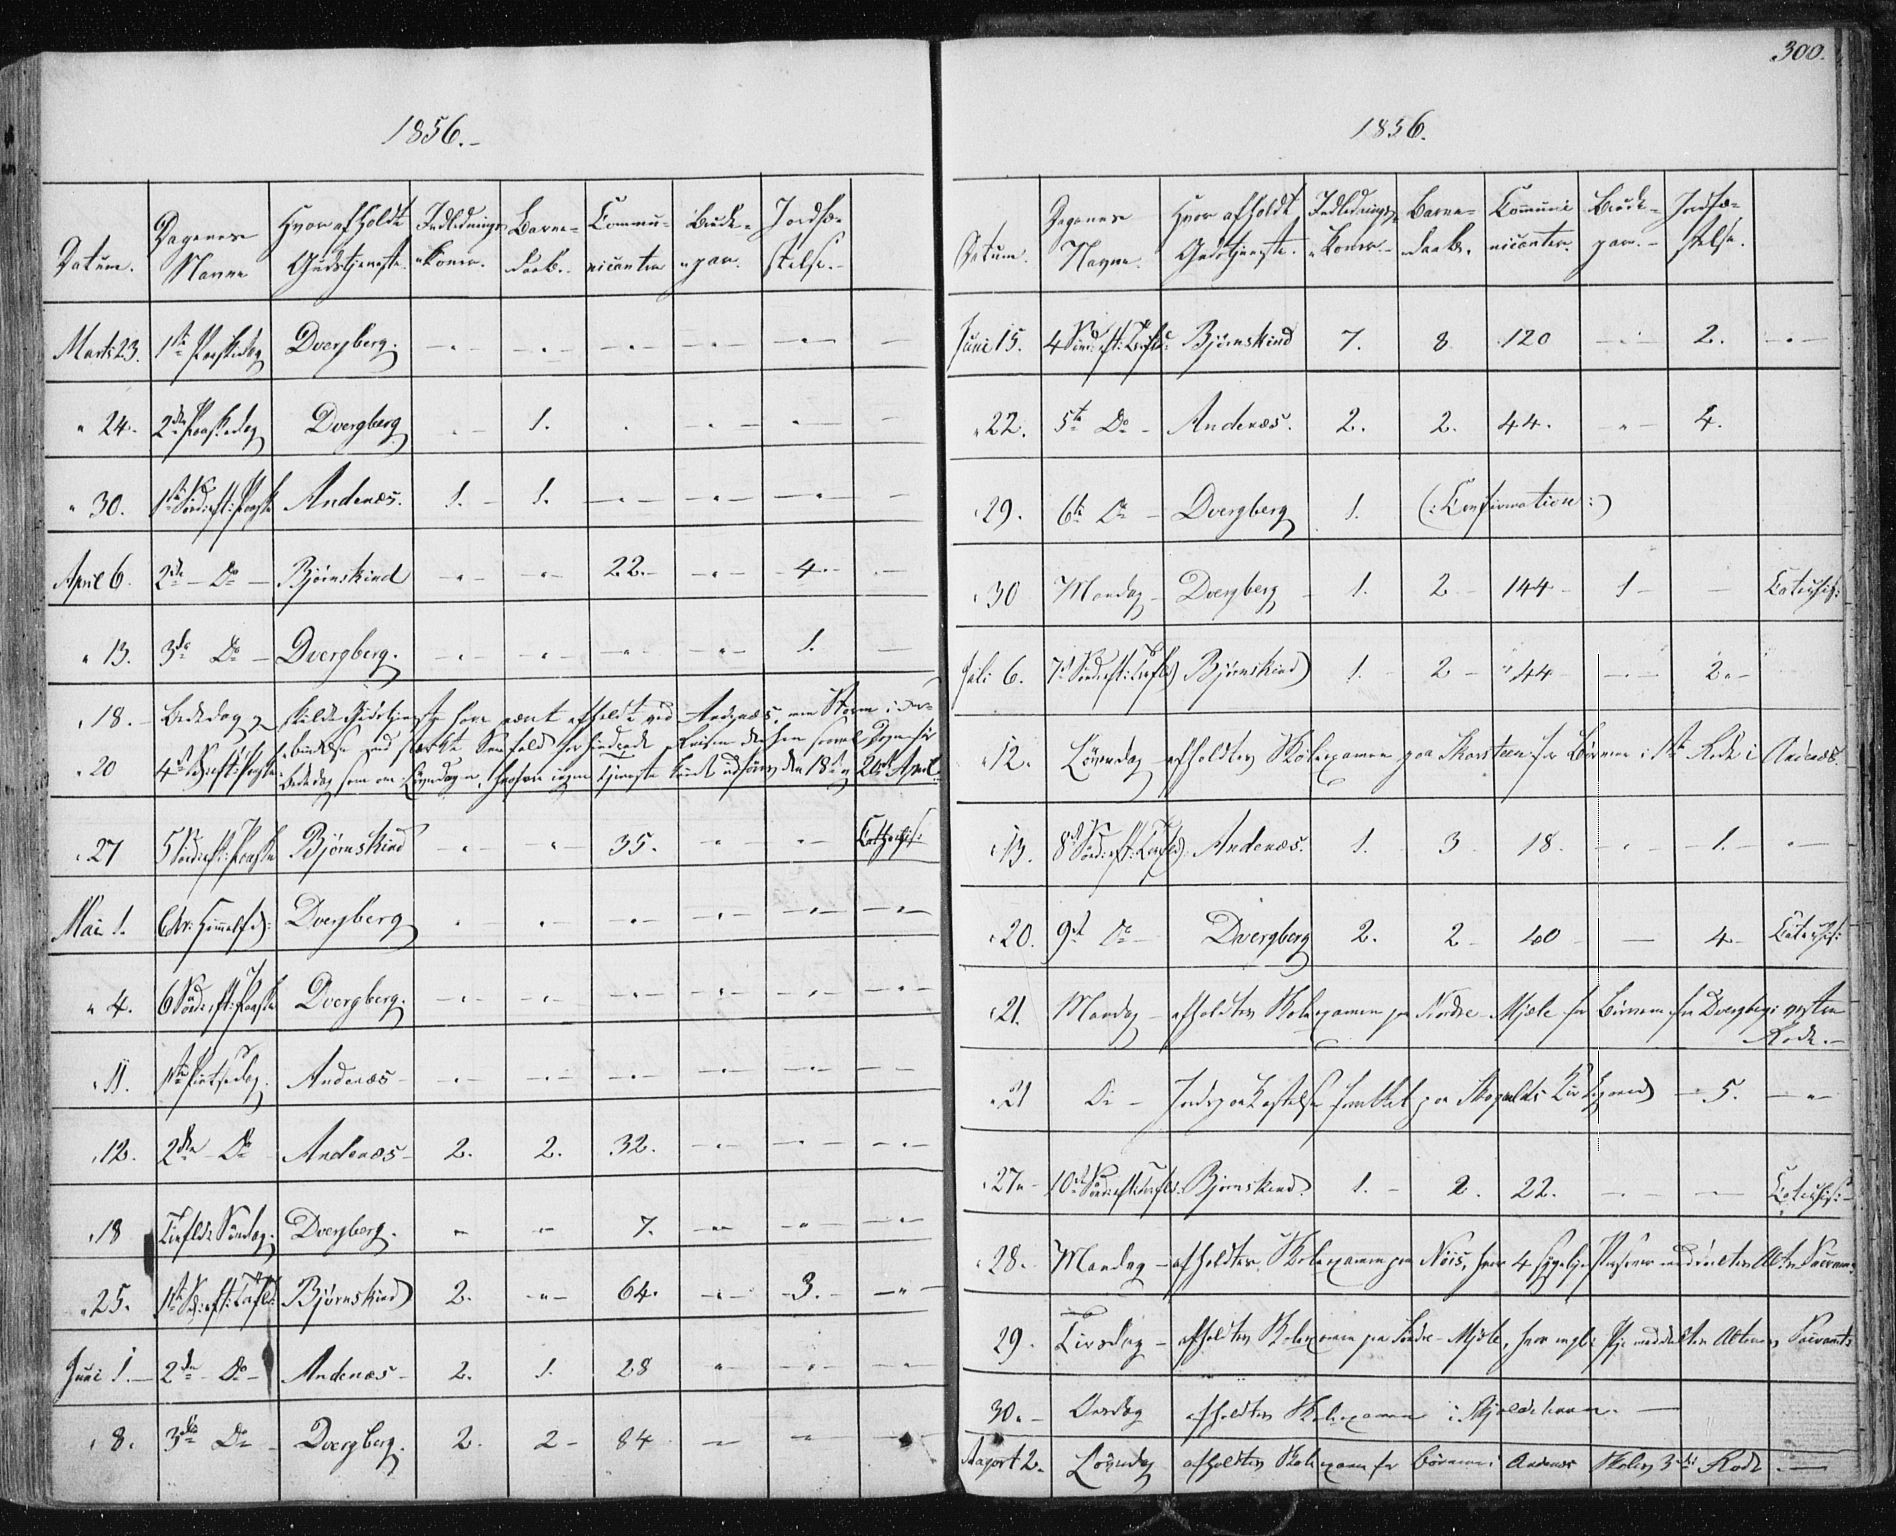 300.
1856.
Datum. Dagenes Navne Hvor afholdt Gudstjeneste. Indlednings-koner. Barne-daab. Commu-nicanter Brude-par. Jordfæ-stelse.
Marts 23. 1ste Paaskedag Dvergberg. - - - - - -
" 24. 2den Paaskedag Dvergberg - 1. - - - -
" 30. 1ste Sønd: eft: Paaske Andenæs. 1. 1. - - - -
April 6. 2den Do Bjørnskind - - 22. - 4. -
" 13. 3die Do Dvergberg. - - - - 1. -
" 18. Bededag
" 20 4de Sønd: eft: Paaske
" 27 5 Sønd: eft: Paaske Bjørnskind - - 35. - - Cathechis:
Mai 1. Chr: Himmelfd: Dvergberg - - - - - -
" 4. 6 Sønd: eft: Paaske Dvergberg. - - - - - -
" 11. 1ste Pintsedag. Andenæs - - - - - -
" 12. 2den Do Andenæs 2. 2. 32. - - -
" 18 Trefold: Søndag. Dvergberg. - - 7. - - -
" 25. 1ste Sønd: eft: Trefold: Bjørnskind 2. - 64. - 3. -
Juni 1. 2den Do Andenæs 2. 1. 28 - - -
" 8. 3die Do Dvergberg. 2. 2 84 - - -
1856.
Datum. Dagenes Navne. Hvor afholdt Gudstjeneste. Indlednings-koner. Barne-daab. Communi-nicanter. Brude-par. Jordfæ-stelse.
Juni 15. 4 Sønd: eft: Trefold: Bjørnskind 7. 8 120 - 2. -
" 22. 5te Do Andenæs. 2. 2. 44. - 4.
" 29. 6te Do Dvergberg 1. (: Confirmation :)
" 30 Mandag Dvergberg 1. 2 144 1 - Catechis:
Juli 6. 7de Sønd: eft: Trefold: Bjørnskind 1. 2 44 - 2. -
" 12. Løverdag afholdtes Skoleexamen paa Skarsteen for Børnene i 1ste Rode i Andenæs.
" 13. 8de Sønd: eft: Trefold: Andenæs. 1. 3 18. - 1. -
" 20. 9de Do Dvergberg 2. 2 40 - 4 Catechis:
" 21. Mandag afholdtes Skoleexamen paa Nordre-Mjele for Børnene fra Dvergbergs vestre Rode.
" 21 Do Jordpaakastelse forrettet paa Skogvolds Kirkegaard 5. -
" 27. 10de Sønd: eft: Trefold: Bjørnskind. 1. 2. 22. - - Catechis:
" 28. Mandag afholdtes Skoleexamen paa Nøis, hvor 4 sygelige Personer meddeeltes Alt: Sacram:
29. Tirsdag afholdtes Skoleexamen paa Søndre-Mjele, hvor meddeeltes Altens Sacramt:
30. Onsdag afholdtes Skoleexamen i Skjoldehavn.
August 2. Løverdag afholdtes Skoleexamen for Børnene i Andenæs Skoles 3die Rode.